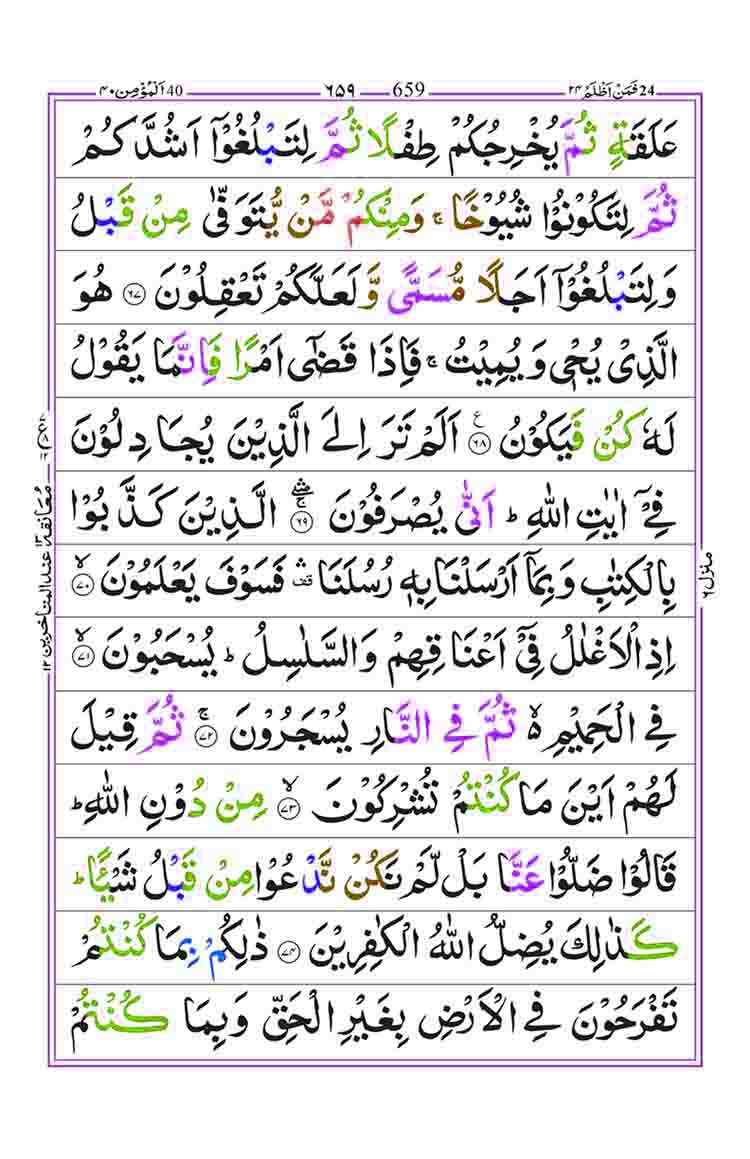 فَمَنْ اَظْلَمُ ۲۴ 24 659 ۶۵۹ 40 اَلْمُؤْمِن ۴۰
عَلَقَةٍ ثُمَّ يُخْرِجُكُمْ طِفْلًا ثُمَّ لِتَبْلُغُوْٓا اَشُدَّكُمْ
ثُمَّ لِتَكُوْنُوْا شُيُوْخًا ۚ وَمِنْكُمْ مَّنْ يُّتَوَفّٰى مِنْ قَبْلُ
وَلِتَبْلُغُوْٓا اَجَلًا مُّسَمًّى وَّلَعَلَّكُمْ تَعْقِلُوْنَ ۶۷ هُوَ
الَّذِيْ يُحْيٖ وَيُمِيْتُ ۚ فَاِذَا قَضٰٓى اَمْرًا فَاِنَّمَا يَقُوْلُ
لَهٗ كُنْ فَيَكُوْنُ ۶۸ ع اَلَمْ تَرَ اِلَى الَّذِيْنَ يُجَادِلُوْنَ
فِيْٓ اٰيٰتِ اللّٰهِ ؕ اَنّٰى يُصْرَفُوْنَ ۶۹ الَّذِيْنَ كَذَّبُوْا
بِالْكِتٰبِ وَبِمَآ اَرْسَلْنَا بِهٖ رُسُلَنَا قف فَسَوْفَ يَعْلَمُوْنَ ۷۰ لا
اِذِ الْاَغْلٰلُ فِيْٓ اَعْنَاقِهِمْ وَالسَّلٰسِلُ ؕ يُسْحَبُوْنَ ۷۱ لا
فِي الْحَمِيْمِ ۙ ثُمَّ فِي النَّارِ يُسْجَرُوْنَ ۷۲ ج ثُمَّ قِيْلَ
لَهُمْ اَيْنَ مَا كُنْتُمْ تُشْرِكُوْنَ ۷۳ لا مِنْ دُوْنِ اللّٰهِ ؕ
قَالُوْا ضَلُّوْا عَنَّا بَلْ لَّمْ نَكُنْ نَّدْعُوْا مِنْ قَبْلُ شَيْـًٔا ؕ
كَذٰلِكَ يُضِلُّ اللّٰهُ الْكٰفِرِيْنَ ۷۴ ذٰلِكُمْ بِمَا كُنْتُمْ
تَفْرَحُوْنَ فِي الْاَرْضِ بِغَيْرِ الْحَقِّ وَبِمَا كُنْتُمْ
منزل ۶
معانقة ۱۳ عند المتاخرين ۱۲